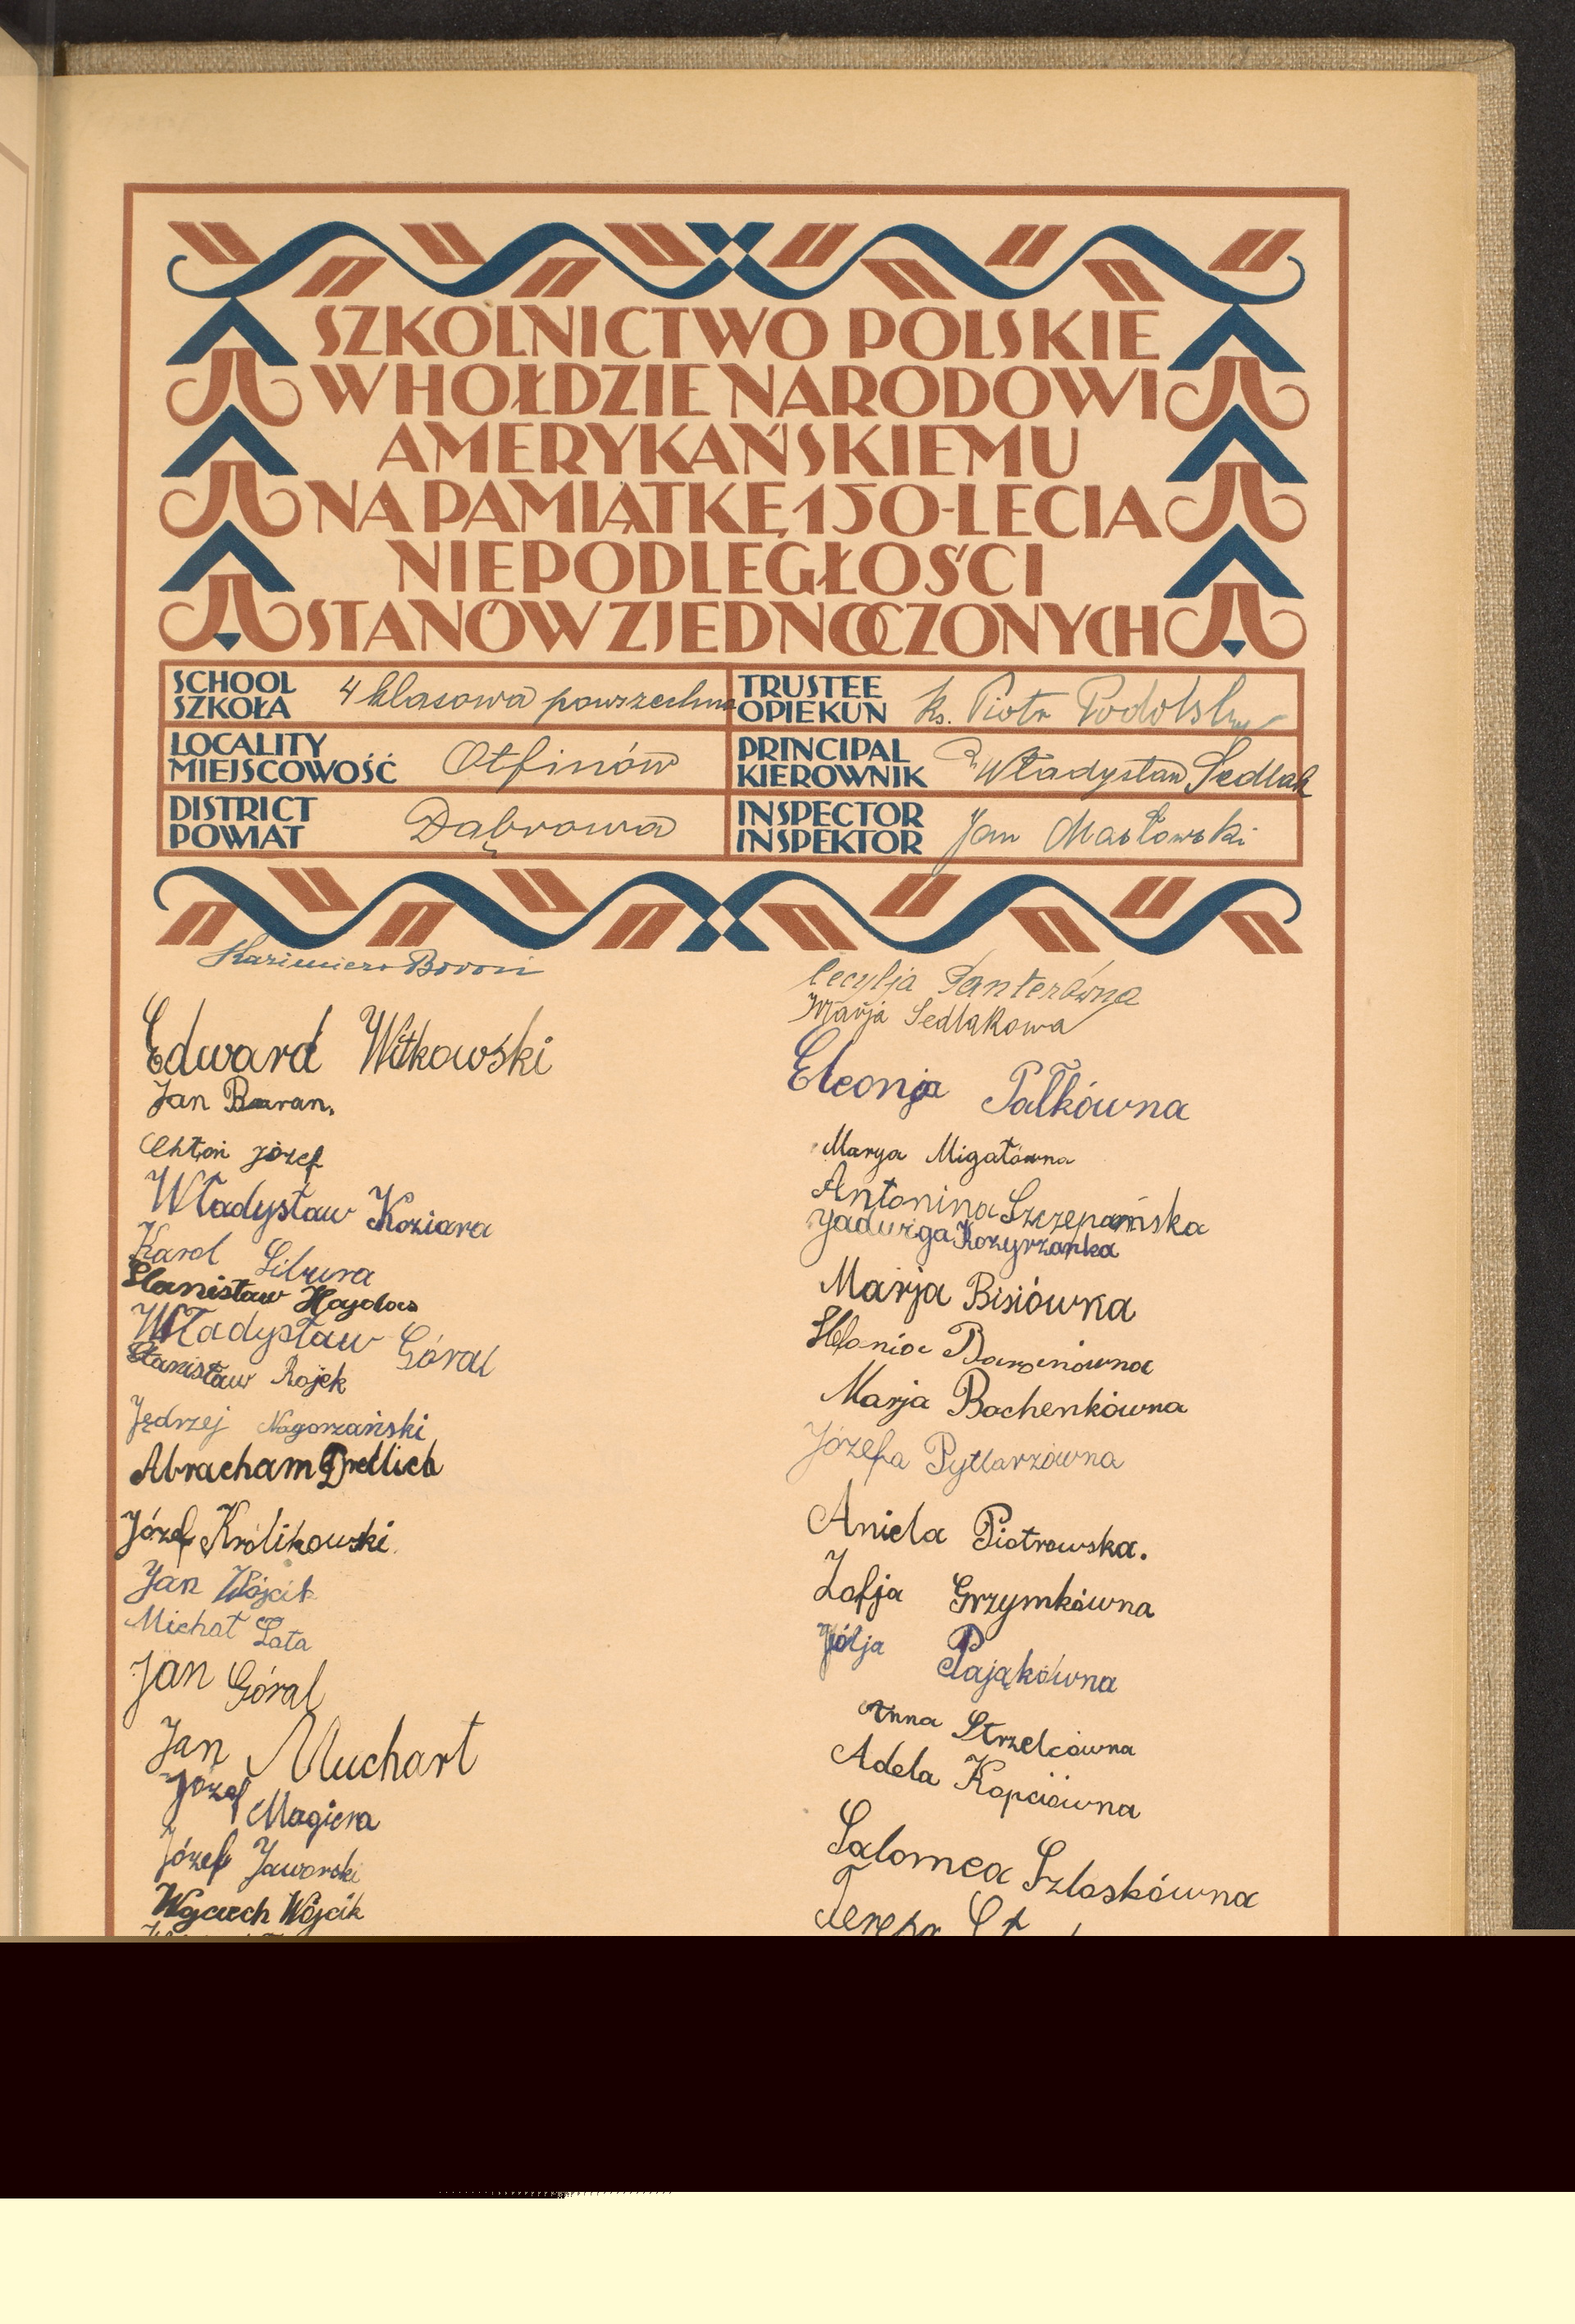 SZKOLNICTWO POLSKIE
W HOŁDZIE NARODOWI
AMERYKAŃSKIEMU
NA PAMIĄTKĘ 150-LECIA
NIEPODLEGŁOŚCI
STANÓW ZJEDNOCZONYCH
SCHOOL
SZKOŁA
4 klasowa powszechna
TRUSTEE
OPIEKUN
ks. Piotr
LOCALITY
MIEJSCOWOŚĆ
Otfinów
PRINCIPAL
KIEROWNIK
Władysław Sedlak
DISTRICT
POWIAT
Dąbrowa
INSPECTOR
INSPEKTOR
Jan Masłowski
Kazimierz Boroń
Edward Witkowski
Jan Baran.
Chłoń Józef
Władysław Koziara
Karol Libura
Stanisław Hajdas
Władysław Góral
Stanisław Rojek
Jędrzej Nagorzański
Abracham Dredlich
Józef Królikowski.
Jan Wójcik
Michał Łata
Jan Góral
Jan Muchart
Józef
Magiera
Józef Jaworski
Wojciech Wójcik
Cecylja Panterówna
Marja Sedlakowa
Eleonja Pałkówna
Marya Migałówna
Antonina Szczepańska
Jadwiga Kozyrzanka
Marja Bisiówna
Stefania Baranówna
Marja Bochenkówna
Józefa Pytlarzówna
Aniela Piotrowska.
Zofja Grzymkówna
Julja Pająkówna
Anna Strzelcówna
Adela Kopciówna
Salomea Szloskówna